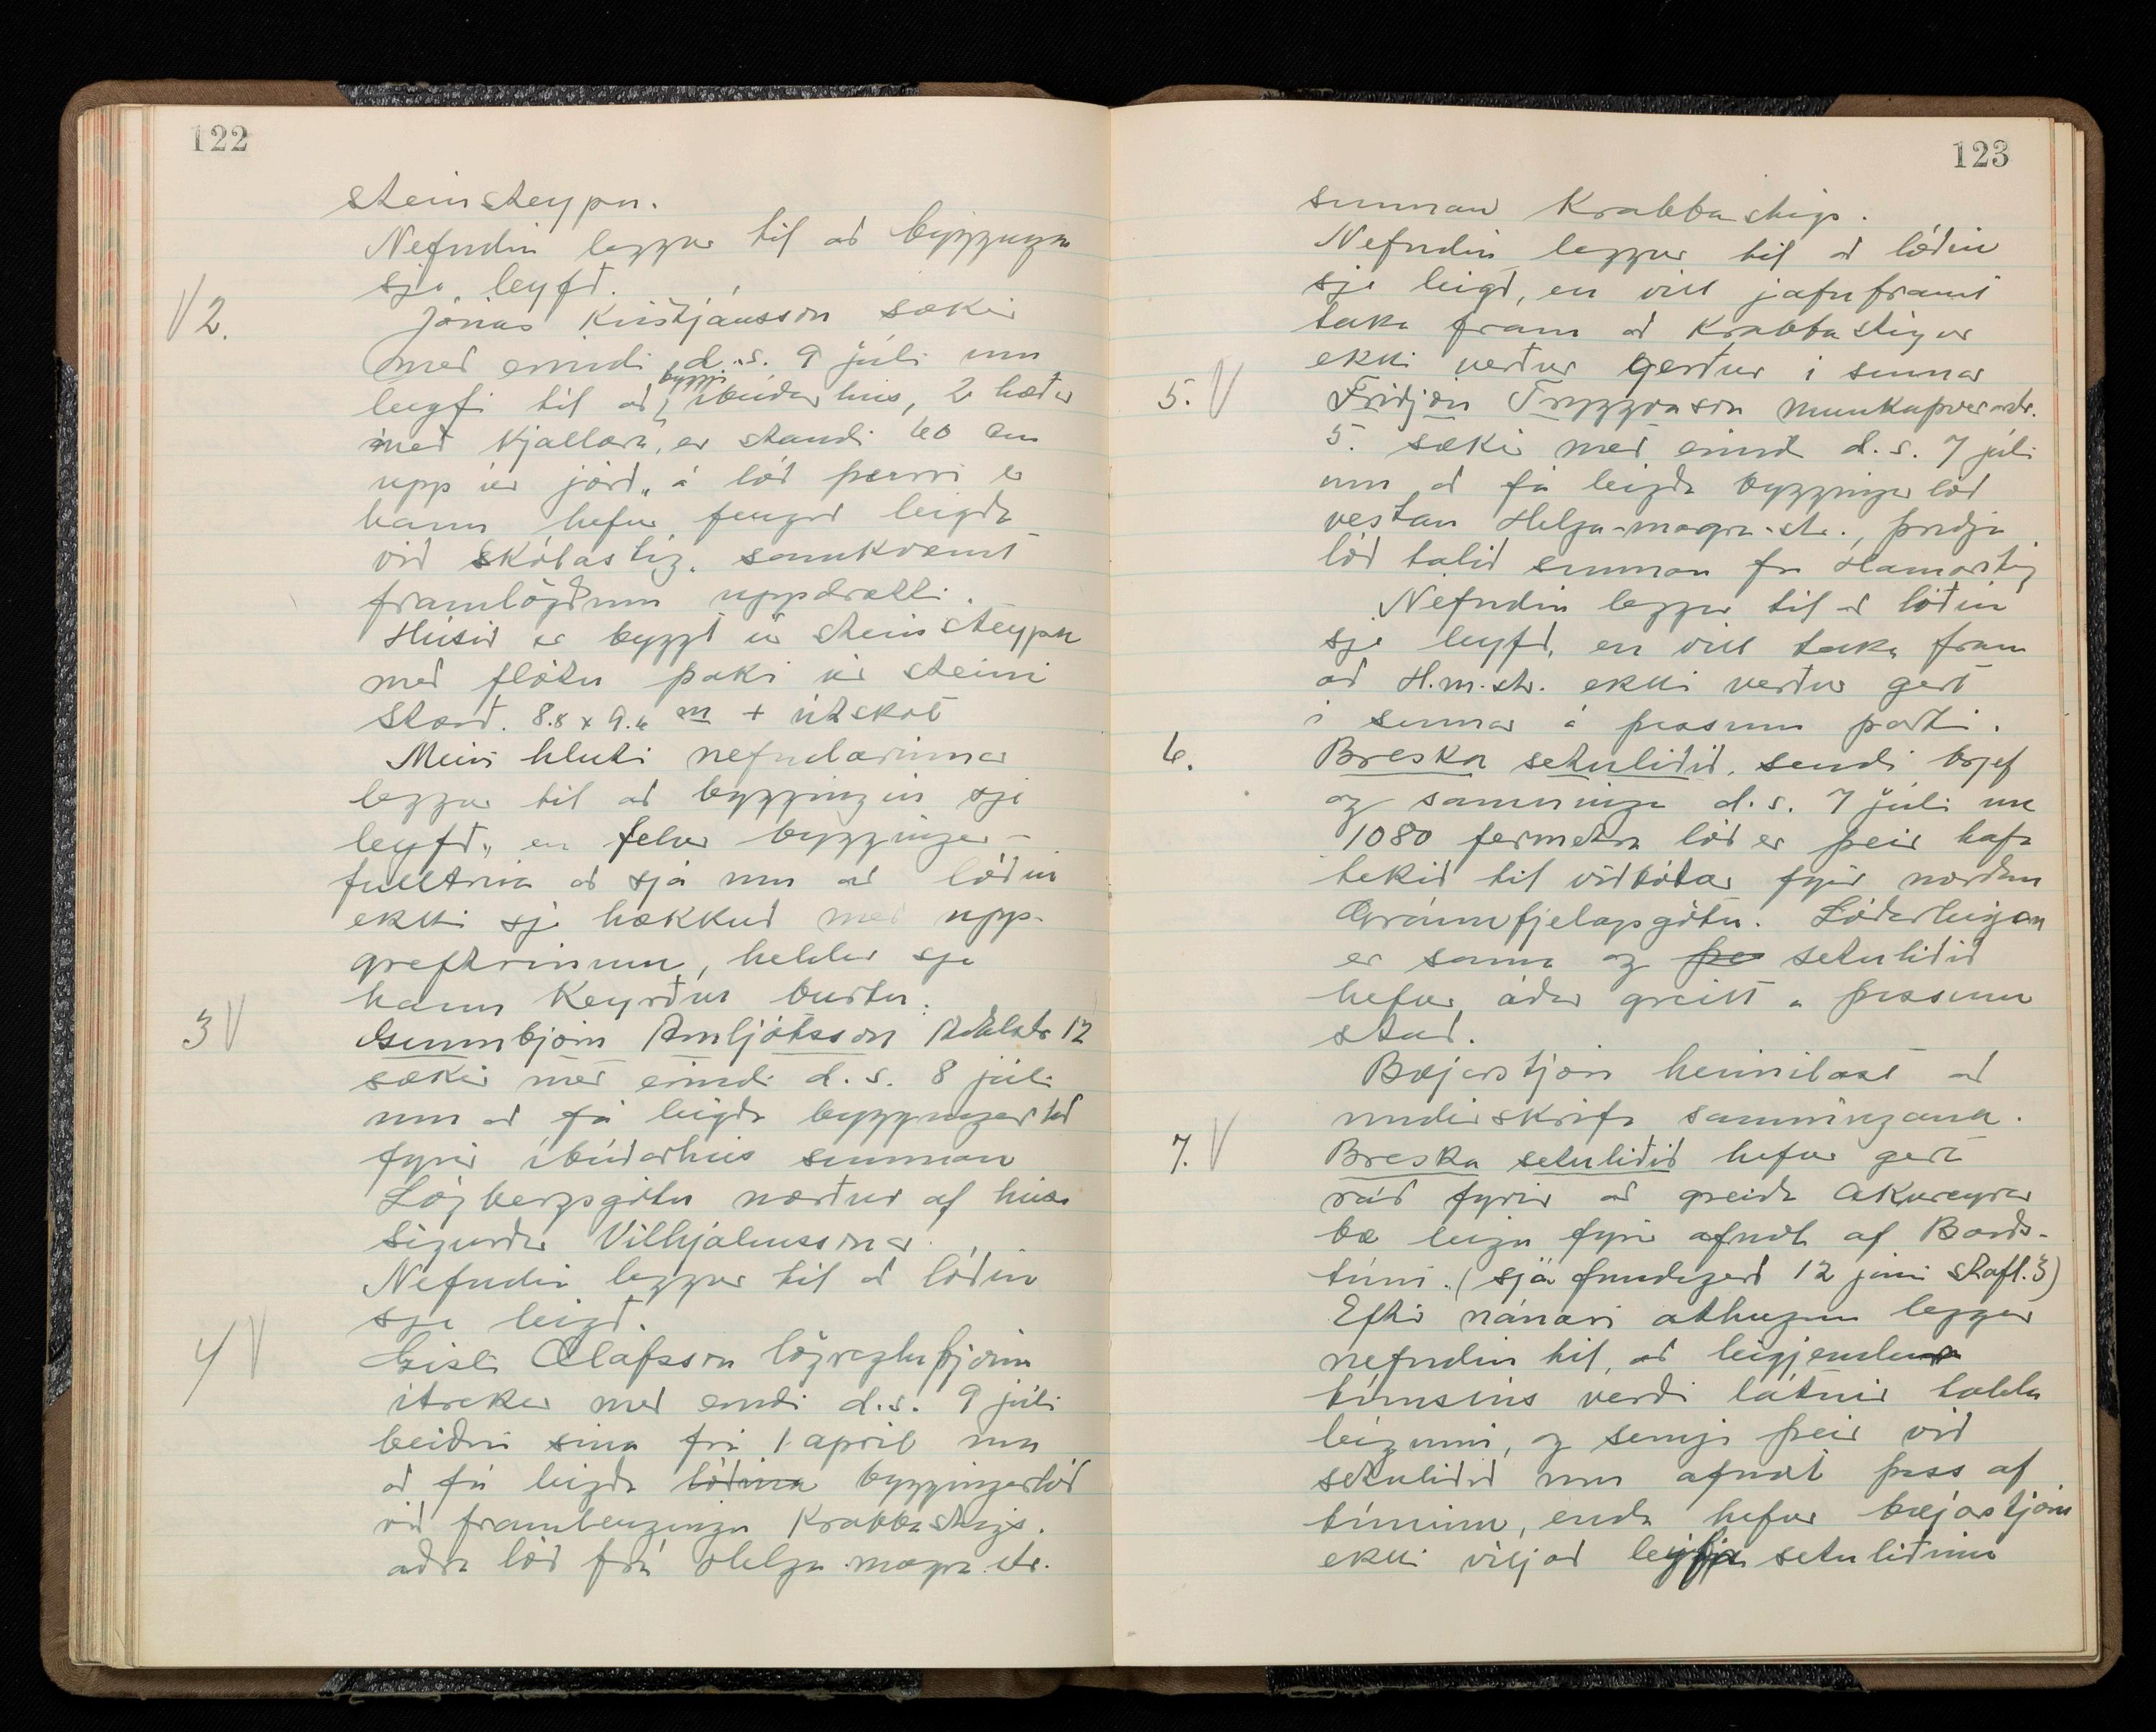 122
steinsteypu.
Nefndin leggur til að byggingin
sje leyfð.
V 2. Jónas Kristjánsson sækir
með erindi, d.s. 9 júli um
leyfi til að byggja íbúðarhús, 2 hæðir
með kjallara, er standi 60 cm
upp úr jörð, á lóð þeirri er
hann hefur fengið leigða
við Skólastíg, samkvæmt
framlögðum uppdrætti.
Húsið er byggt úr steinsteypu
með flötu þaki úr steini
Stærð. 8.8 x 9.6 m + útskot
Meiri hluti nefndarinnar
leggur til að byggingin sje
leyfð, en felur byggingar-
fulltrúa að sjá um að lóðin
ekki sje hækkuð með upp-
greftrinum, heldur sje
hann keyrður burtu.
3 V Gunnbjörn Arnljótsson Aðalstr 12
sækir með erindi d.s. 8 júli
um að fá leigða byggingarlóð
fyrir íbúðarhús sunnan
Lögbergsgötu norður af húsi
Sigurðar Vilhjálmssonar.
Nefndin leggur til að lóðin
sje leigð.
4 V Gísli Ólafsson lögregluþjónn
ítrekar með erindi d.s. 9 júli
beiðni sína frá 1. apríl um
að fá leigða lóðina byggingarlóð
við framlengingu Krabbastígs.
aðra lóð frá Helga-magra-str.
123
sunnan Krabbastigs.
Nefndin leggur til að lóðin
sje leigð, en vill jafnframt
taka fram að Krabbastígur
ekki verður gerður í sumar
5. V Friðjón Tryggvason Munkaþverárstr.
5. sækir með erindi d.s. 7 júli
um að fá leigða byggingarlóð
vestan Helga-magra-str., þriðju
lóð talið sunnan frá Hamarstíg
Nefndin leggur til að lóðin
sje leyfð, en vill taka fram
að H.m.str. ekki verður gert
í sumar á þessum parti.
6. Breska setuliðið, sendi brjef
og samninga d.s. 7 júli um
1080 fermetra lóð er þeir hafa
tekið til viðbótar fyrir norðan
Gránufjelagsgötu. Lóðarleigan
er sama og þe setuliðið
hefur áður greitt á þessum
stað.
Bæjarstjóri heimilast að
undirskrifa samningana.
7. V Breska setuliðið hefur gert
ráð fyrir að greiða Akureyrar
bæ leigu fyrir afnot af Borðs-
túni. (sjá fundargerð 12 júni stafl. 3)
Eftir nánari athugun leggur
nefndin til, að leigjendur
túnsins verði látnir halda
leigunni, og semji þeir við
setuliðið um afnot þess af
túninu, enda hefur bæjarstjórn
ekki viljað leyfa setuliðinu